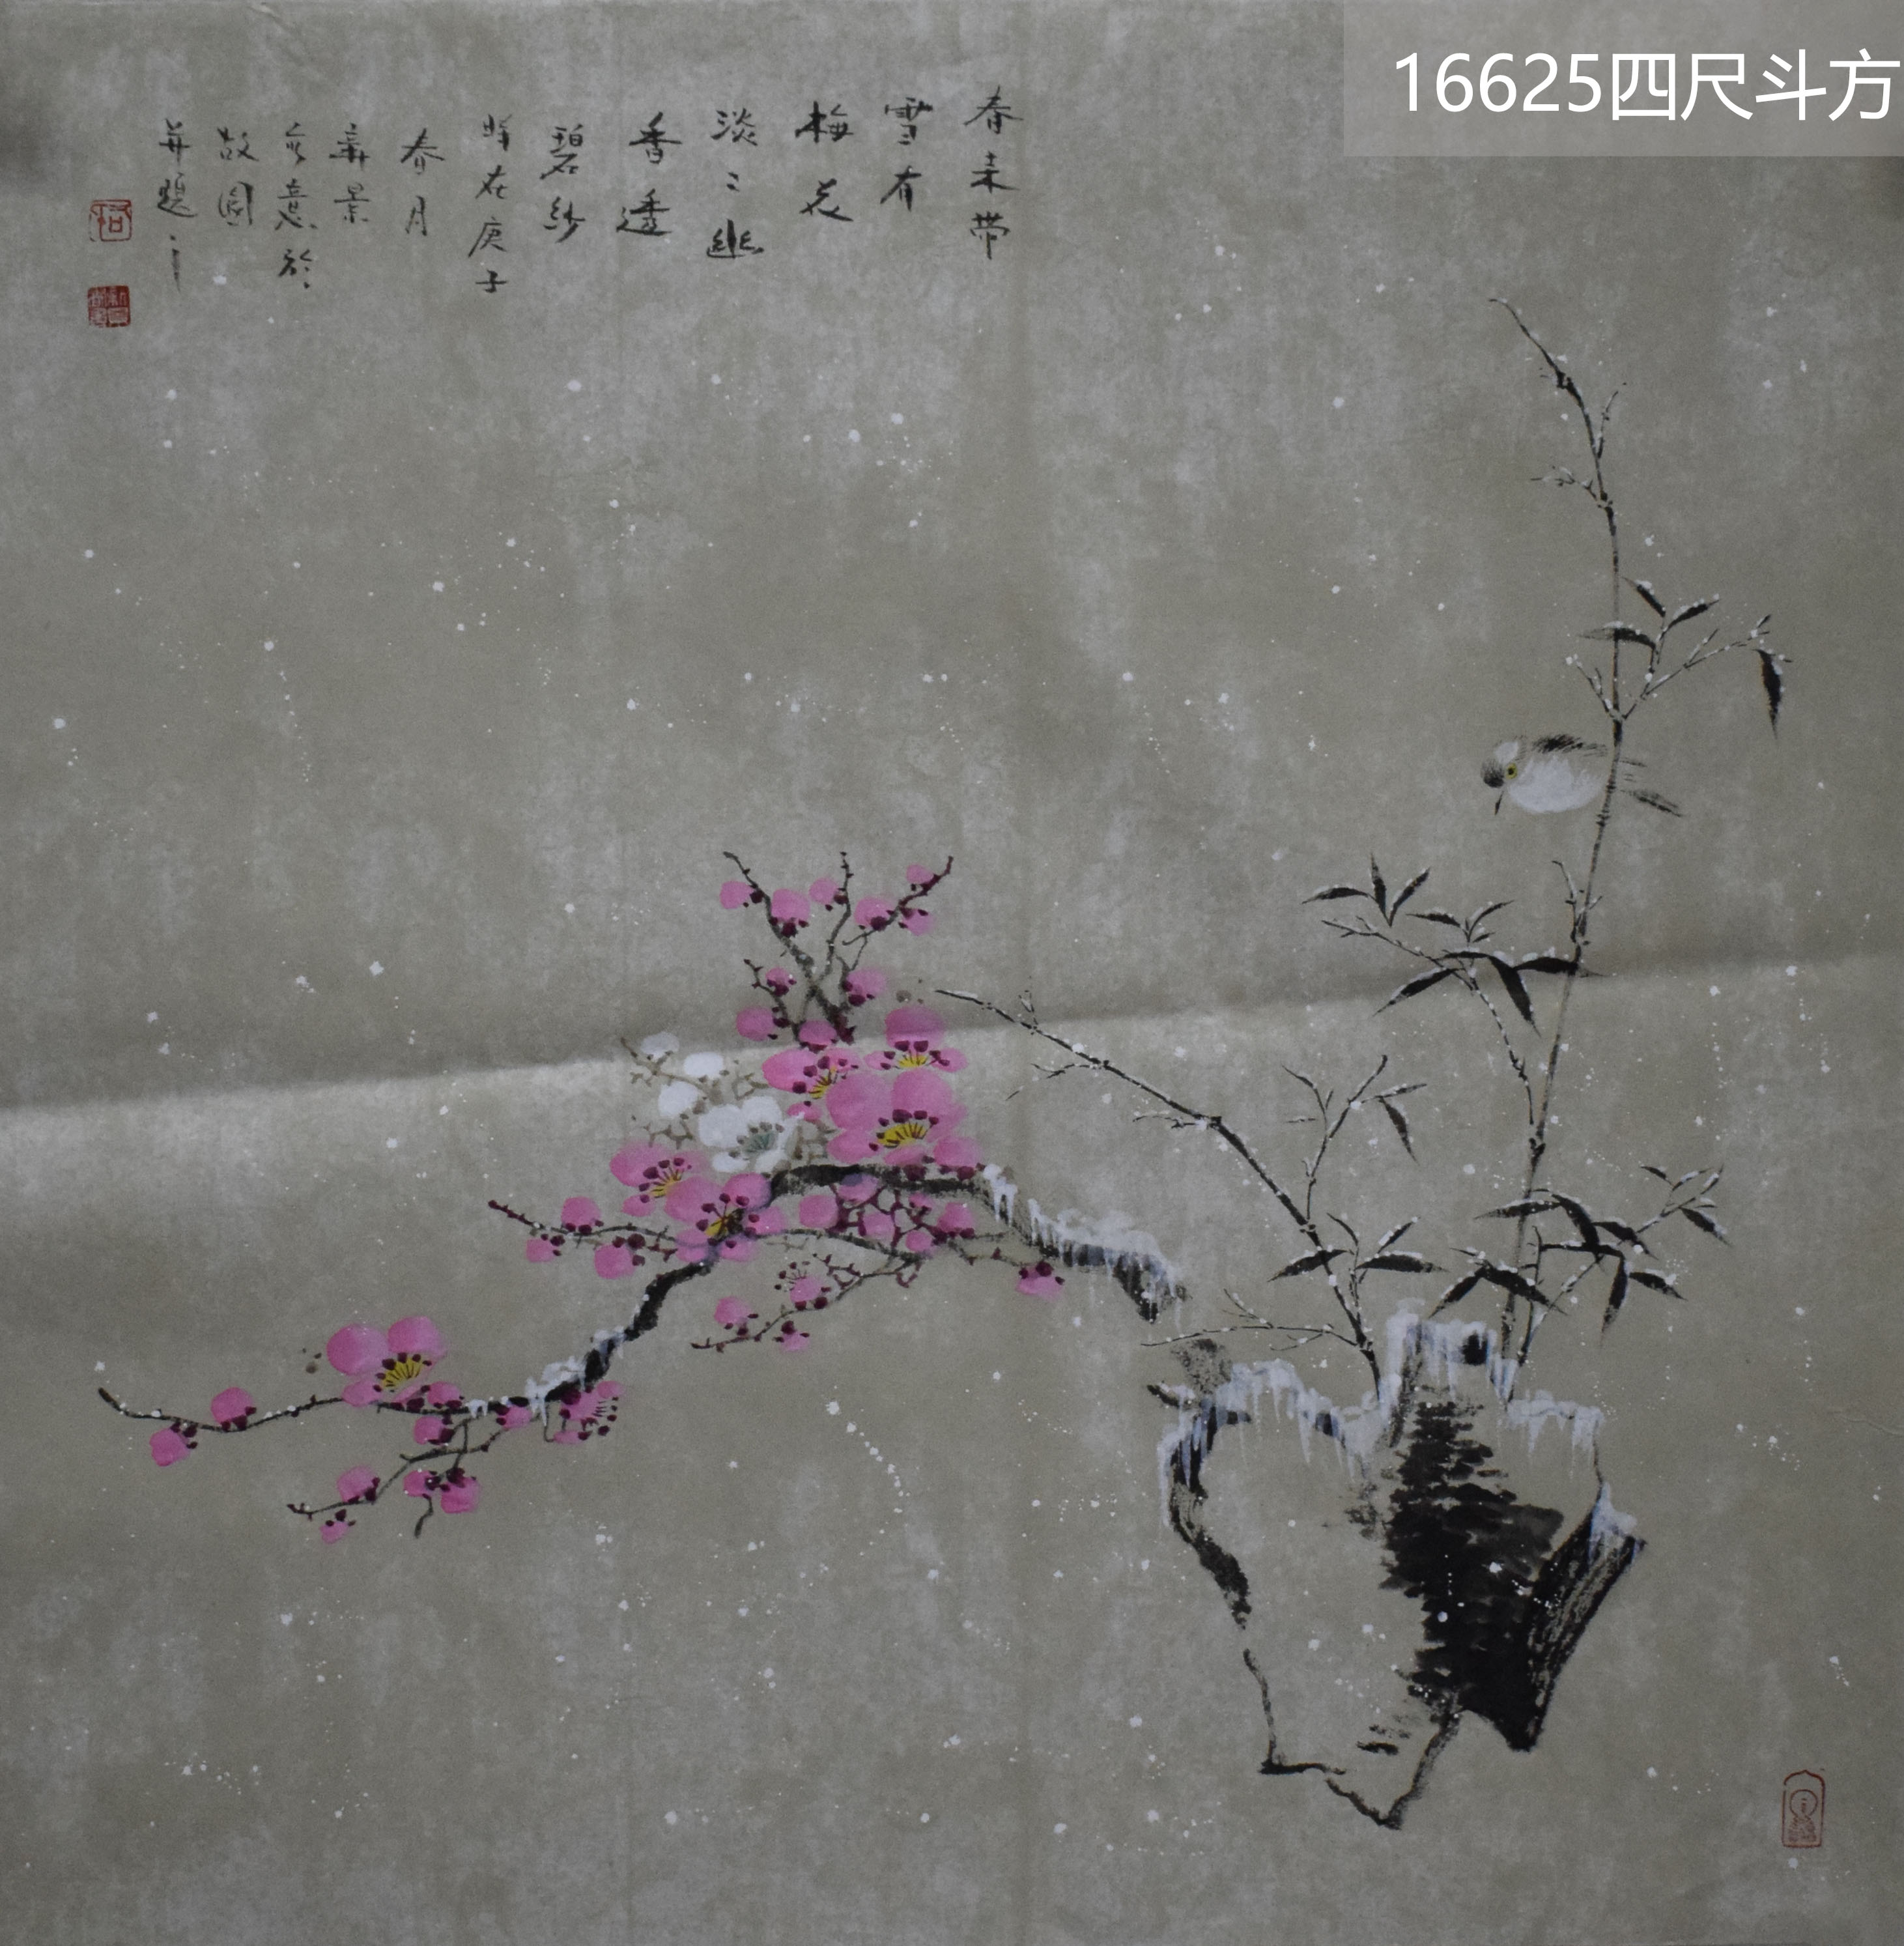 16625四尺斗方
春来带
雪看
梅花
淡〻幽
香透
碧纱
时在庚子
春月
新景
写意於
故園
并題之